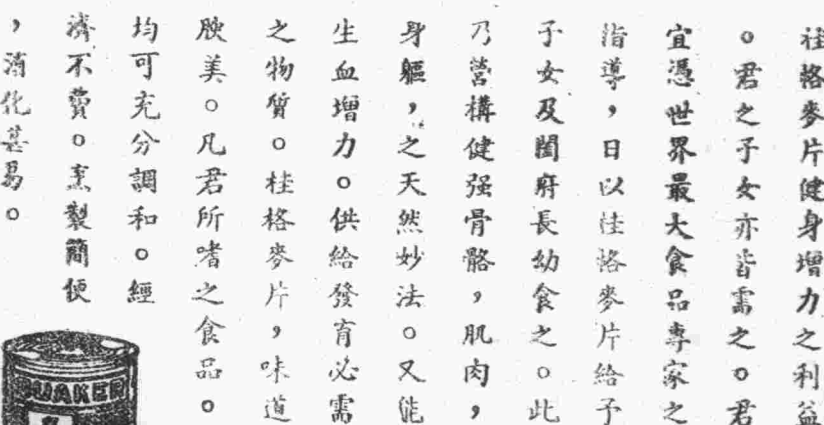 桂格麥片健身增力之利益
。君之子女亦皆需之。君
宜憑世界最大食品專家之
指導，日以桂格麥片給予
子女及閤府長幼食之。此
乃營構健强骨骼，肌肉，
身軀，之天然妙法。又能
生血增力。供給發育必需
之物質。桂格麥片，味道
腴美。凡君所嗜之食品。
均可充分調和。經
濟不費。烹製簡便
，消化甚易。
QUAKER